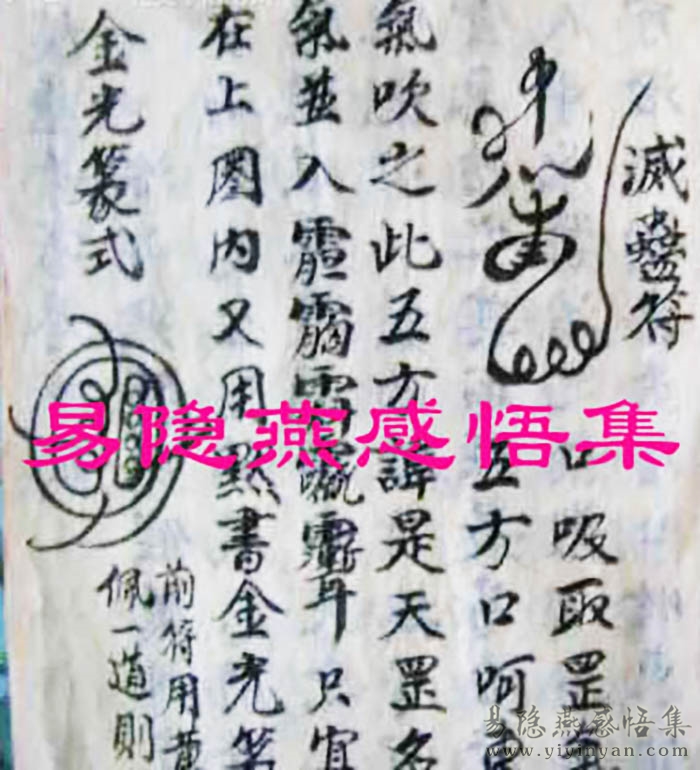 滅蠱符
口吸取罡
五方口呵
氣吹之此五方諱是天罡名
氣並入
耳只宜
在上圈内又用黙書金光篆
金光篆式
前符用黄
佩一道則
易隐燕感悟集
易隐燕感悟集
www.yiyinyan.com